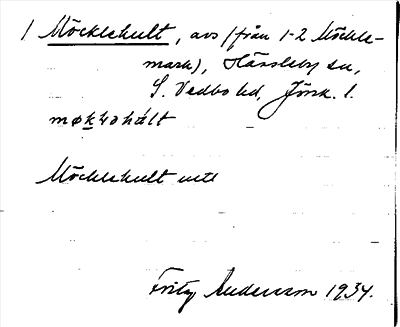 1 Möcklehult, avs (från 1-2 Möckle-
mark), Hässleby sn,
S. Vedbo hd, Jönk. l.
Möcklehult
Fritz Andersson 1934.